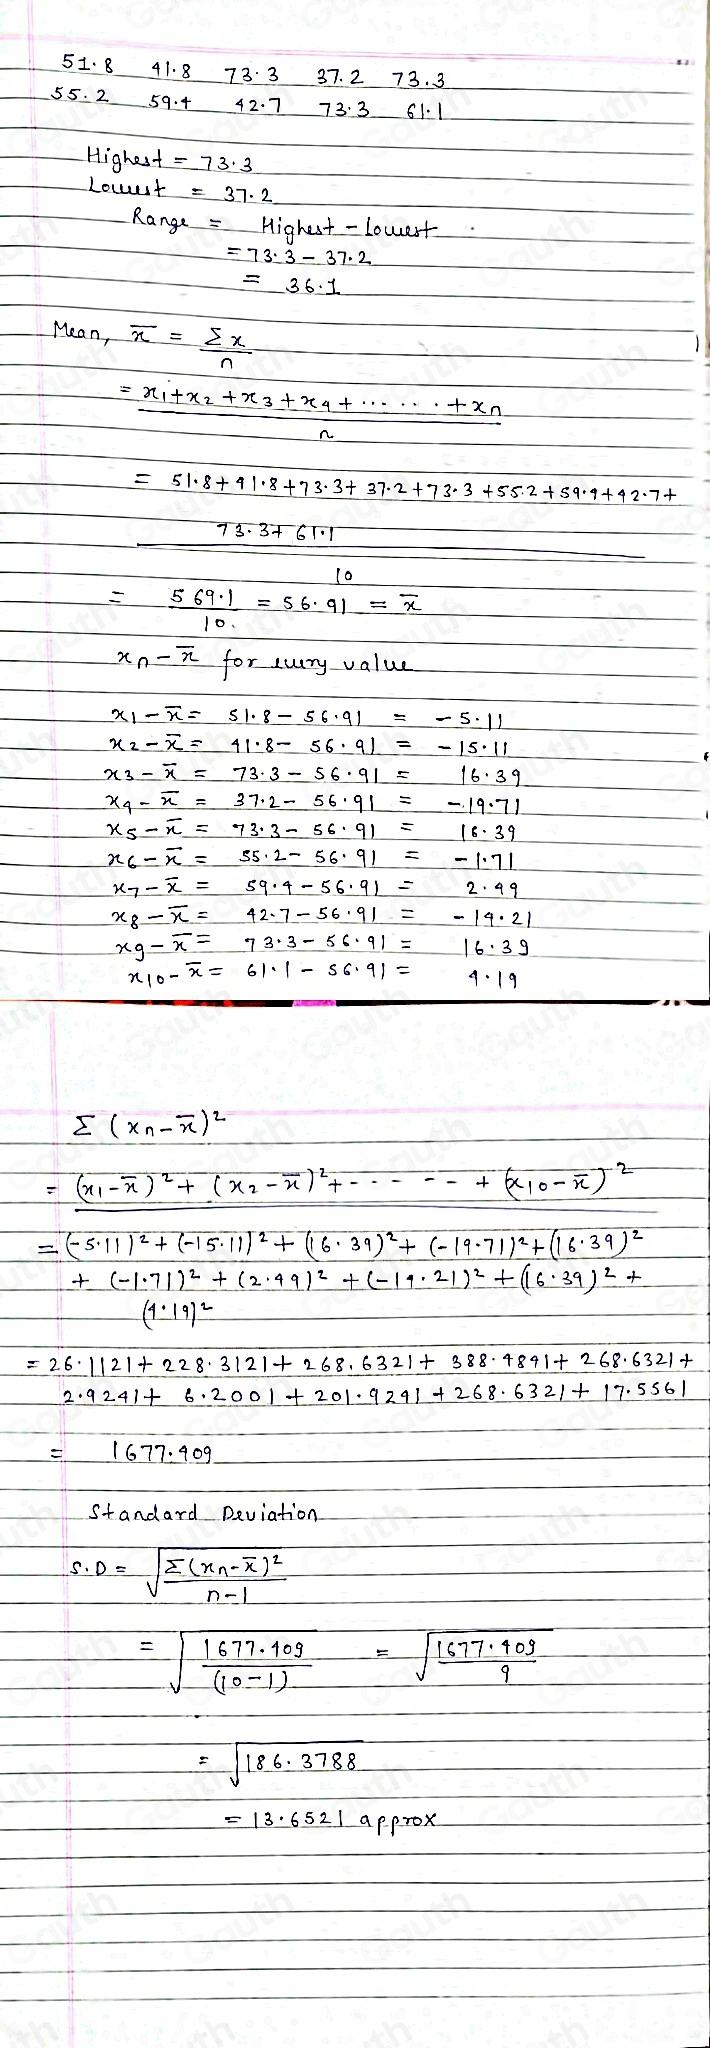 51.8 41.8 73.3 37.2 73.3
55.2 59.4 42.7 73.3 61.1
Highest = 73.3
Lowest = 37.2
Range = Highest - Lowest
= 73.3 - 37.2
= 36.1
Mean, x̄ = Σx/n
= x1 + x2 + x3 + x4 + ...... + xn
n
= 51.8 + 41.8 + 73.3 + 37.2 + 73.3 + 55.2 + 59.4 + 42.7 +
73.3 + 61.1
10
= 569.1/10. = 56.91 = x̄
xn - x̄ for every value
x1 - x̄ = 51.8 - 56.91 = -5.11
x2 - x̄ = 41.8 - 56.91 = -15.11
x3 - x̄ = 73.3 - 56.91 = 16.39
x4 - x̄ = 37.2 - 56.91 = -19.71
x5 - x̄ = 73.3 - 56.91 = 16.39
x6 - x̄ = 55.2 - 56.91 = -1.71
x7 - x̄ = 59.4 - 56.91 = 2.49
x8 - x̄ = 42.7 - 56.91 = -14.21
x9 - x̄ = 73.3 - 56.91 = 16.39
x10 - x̄ = 61.1 - 56.91 = 4.19
Σ (xn - x̄)²
= (x1 - x̄)² + (x2 - x̄)² + ------ + (x10 - x̄)²
= (-5.11)² + (-15.11)² + (16.39)² + (-19.71)² + (16.39)²
+ (-1.71)² + (2.49)² + (-14.21)² + (16.39)² +
(4.19)²
= 26.1121 + 228.3121 + 268.6321 + 388.4841 + 268.6321 +
2.9241 + 6.2001 + 201.9241 + 268.6321 + 17.5561
= 1677.409
Standard Deviation
S.D = √(Σ(xn - x̄)²/n-1)
= √(1677.409/(10-1)) = √(1677.409/9)
= √186.3788
= 13.6521 approx